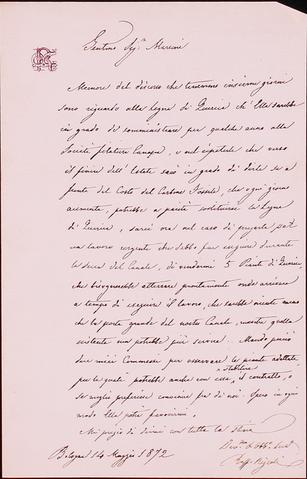 Gentmo Sigr Marconi
Memore del discorso che tenemmo insieme giorni
sono riguardo alle legne di Quercia ch'Ella sarebbe
in grado di somministrare per qualche anno alla
Società filatura Canapa, e nel ripeterle che verso
il finire dell'Estate sarò in grado di dirle se a
fronte del Costo del Carbone fossile, che ogni giorno
aumenta, potrebbe a parità sostituirsi la legna
di Quercia, sarei ora nel caso di pregarla pel
un lavoro urgente che debbo far eseguire durante
la secca del Canale, di vendermi 5 Piante di Quercia
che bisognerebbe atterrare prontamente onde arrivare
a tempo di eseguire il lavoro, che sarebbe niente meno
che la porta grande del nostro Canale, mentre quella
esistente non potrebbe più servire. Mando perciò
due miei Commessi per osservare le piante adattate
per le quali potrebbe anche con essi stabilire il contratto, o
se meglio preferisce combinare fra di noi. Spero in ogni
modo Ella potrà favorirmi,
Mi pregio di dirmi con tutta la stima
Bologna 14 Maggio 1872